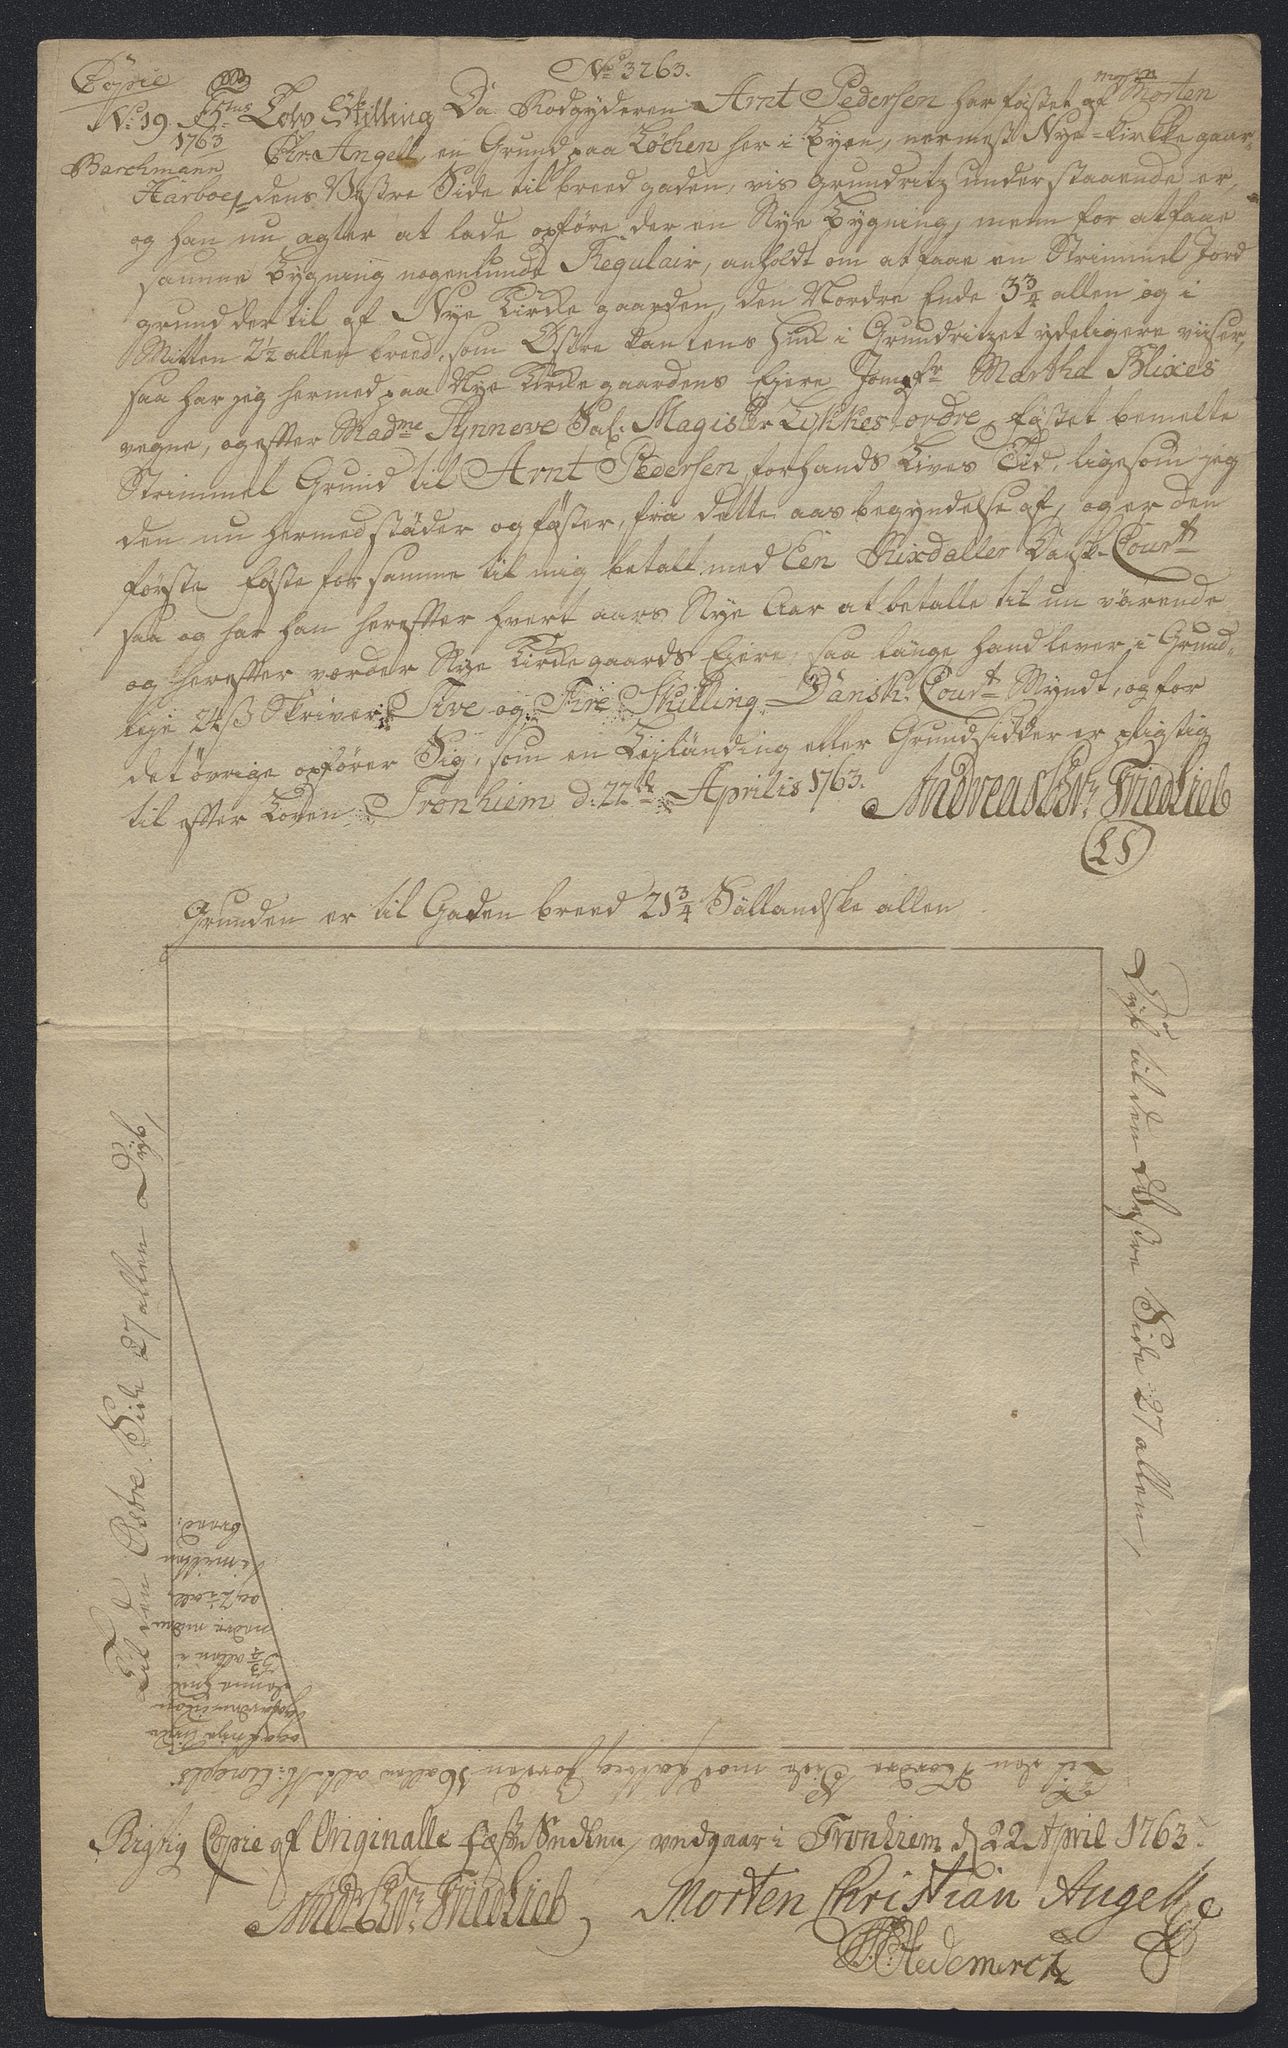 Copie
No 3263.
No 19. Tolv Skilling
1763
Barchmann
Aarboe
Da Rodgyderen Arnt Pedersen har fæstet af Morten
Chr: Angell, en Grund paa Løchen her i Byen, nermest Nye-Kirkke gaar-
dens Vestre Side til breed gaden, vis Grundritz under staaende er,
og han nu agter at lade opføre der en Nye Bygning, menn for at faae
samme Bygning nogenlunde Regulair, anholdt om at faae en Strimmel Jord
grund der til af Nye Kirke gaarden, den Nordre Ende 3 3/4 allen og i
Mitten 2 1/2 allen breed, som Østre Kantens Huk i Grundritzet ydeligere viiser,
saa har jeg hermed paa Nye Kirke gaardens Ejere Jomfr Martha Blixes
vegne, og efter Madme Synneve Sal: Magister Lykkes ordre, fæstet bemelte
Strimmel Grund til Arnt Pedersen, for hands Lives Tid, ligesom jeg
den nu hermed stæder og fæster, fra dette aars begyndelse af, og er den
første fæste for samme til mig betalt med Een Rixdaller Dansk Courtt
saa og har han herefter hvert aars Nye Aar at betalle til nu værende
og herefter vorder Nye Kirke gaards Ejere, saa længe hand lever, i Grund-
leje 24 ß Skriver Tive og Fire Skilling Dansk Courtt Myndt, og for
det øvrige opfører Sig, som en Lejlænding eller Grundsidder er pligtig
til efter Loven. Tronhiem d: 22de Aprilis 1763.
Andreas Chr: Friedlieb
LS
Grunden er til Gaden breed 21 3/4 Sællandske allen
Dyb til den Vestre Side 27 allen,
Til den Østre Side 27 allen Dyb,
og af nye Kirke
gaarden
samme Ende
3 3/4 allen i
nordre Ende
og 2 1/2 all:
i mitten
breed:
Til den Nordre Side mod 16 allen
Rigtig Copie af Originalle Fæste Sedlen, vedgaar i Tronhiem d 22 April 1763.
Andr: Chr: Friedlieb, Morten Christian Angell
Hedemarck